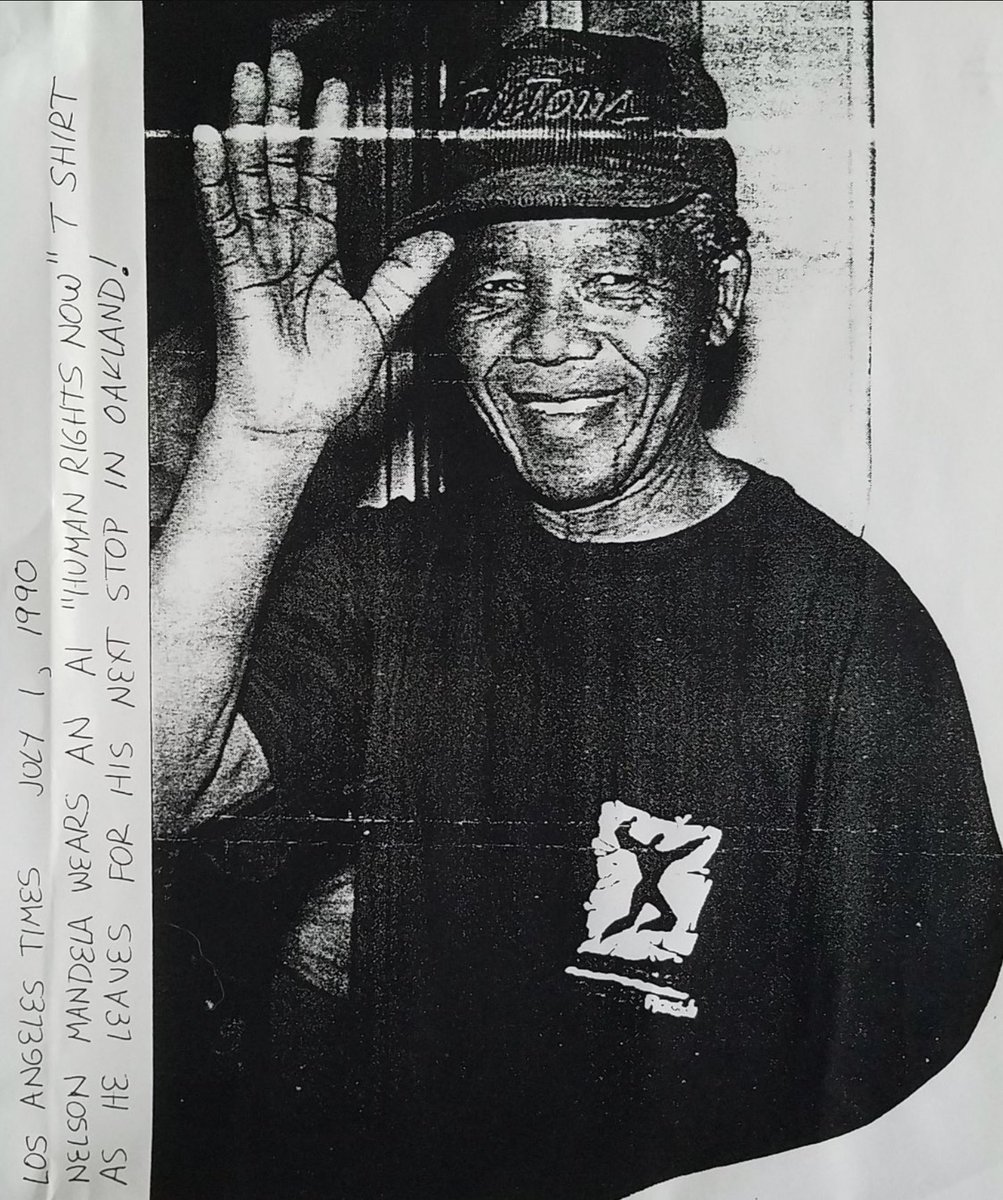 LOS ANGELES TIMES JULY 1, 1990
NELSON MANDELA WEARS AN AI "HUMAN RIGHTS NOW" T SHIRT
AS HE LEAVES FOR HIS NEXT STOP IN OAKLAND!